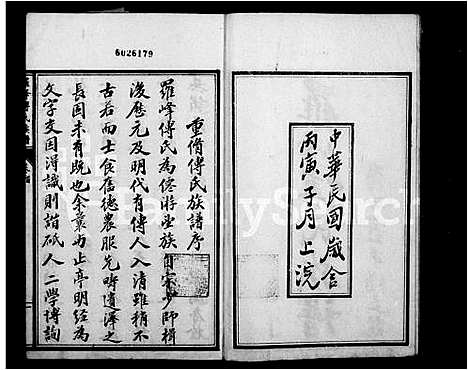 6026179
中華民國歲舍
丙寅子月上浣
重脩傅氏族譜序
羅峰傅氏為僊㳺望族自宋少師楫
後歷元及明代有傳人入清雖稍不
古若而士食舊德農服先疇遺澤之
長固未有既也余曩為止亭明經為
文字交因得識則諧砥人二學博詢
FamilySearch